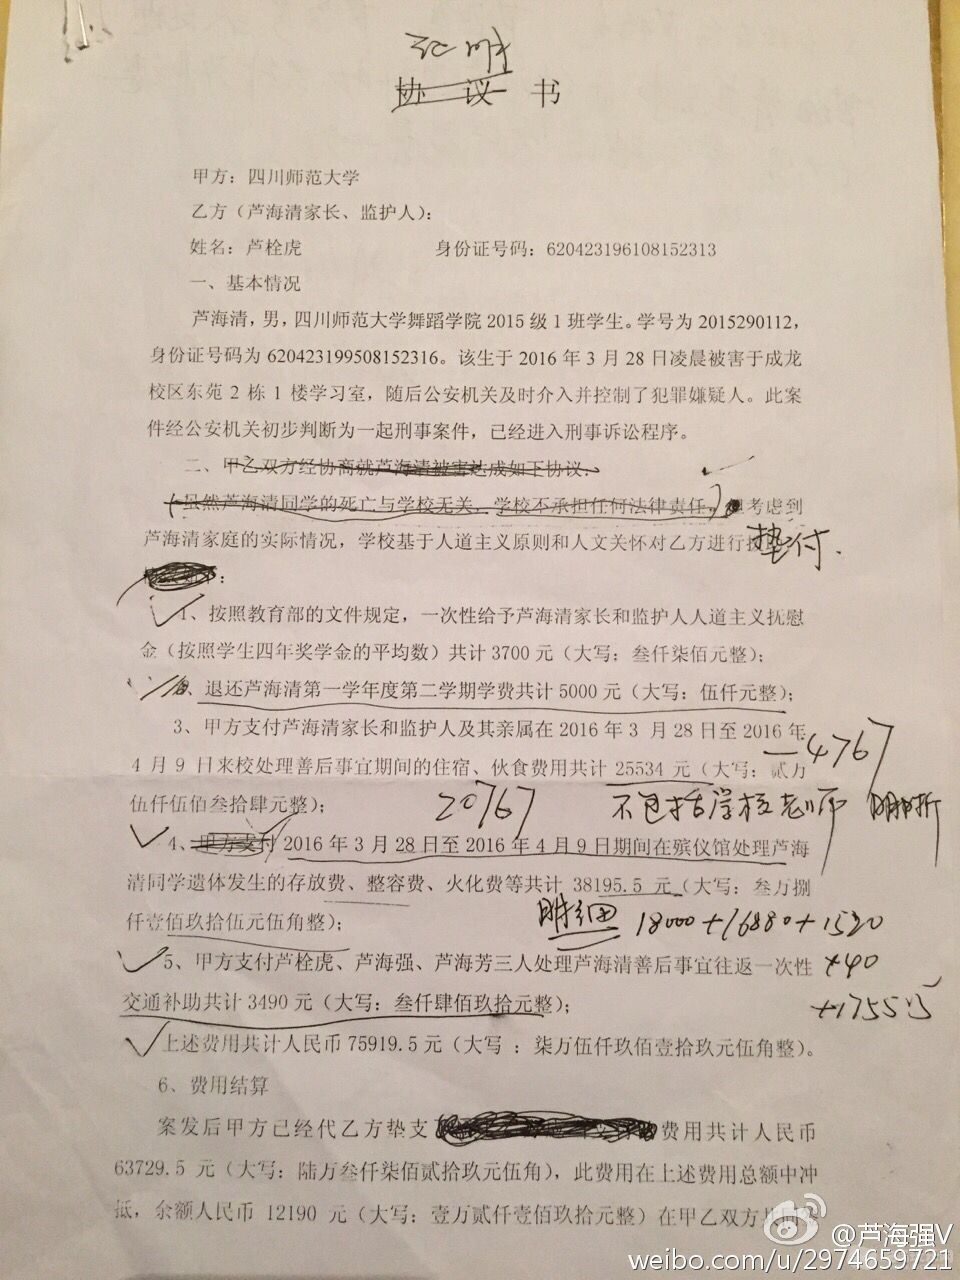 证明
协议 书
甲方：四川师范大学
乙方（芦海清家长、监护人）：
姓名：芦栓虎 身份证号码：620423196108152313
一、基本情况
芦海清，男，四川师范大学舞蹈学院 2015 级 1 班学生。学号为 2015290112，
身份证号码为 620423199508152316。该生于 2016 年 3 月 28 日凌晨被害于成龙
校区东苑 2 栋 1 楼学习室，随后公安机关及时介入并控制了犯罪嫌疑人。此案
件经公安机关初步判断为一起刑事案件，已经进入刑事诉讼程序。
二、甲乙双方经协商就芦海清被害达成如下协议：
虽然芦海清同学的死亡与学校无关，学校不承担任何法律责任。但考虑到
芦海清家庭的实际情况，学校基于人道主义原则和人文关怀对乙方进行
垫付.
：
1、按照教育部的文件规定，一次性给予芦海清家长和监护人人道主义抚慰
金（按照学生四年奖学金的平均数）共计 3700 元（大写：叁仟柒佰元整）；
、退还芦海清第一学年度第二学期学费共计 5000 元（大写：伍仟元整）；
3、甲方支付芦海清家长和监护人及其亲属在 2016 年 3 月 28 日至 2016 年
—4767
4 月 9 日来校处理善后事宜期间的住宿、伙食费用共计 25534 元（大写：贰万
伍仟伍佰叁拾肆元整）；
20767 不包括学校老师
4、甲方支付 2016 年 3 月 28 日至 2016 年 4 月 9 日期间在殡仪馆处理芦海
清同学遗体发生的存放费、整容费、火化费等共计 38195.5 元（大写：叁万捌
仟壹佰玖拾伍元伍角整）；
明细 18000+16880+1520
5、甲方支付芦栓虎、芦海强、芦海芳三人处理芦海清善后事宜往返一次性
+40
交通补助共计 3490 元（大写：叁仟肆佰玖拾元整）；
上述费用共计人民币 75919.5 元（大写 ：柒万伍仟玖佰壹拾玖元伍角整）。
6、费用结算
案发后甲方已经代乙方垫支 费用共计人民币
63729.5 元（大写：陆万叁仟柒佰贰拾玖元伍角），此费用在上述费用总额中冲
抵，余额人民币 12190 元（大写：壹万贰仟壹佰玖拾元整）在甲乙双方
@芦海强V
weibo.com/u/2974659721